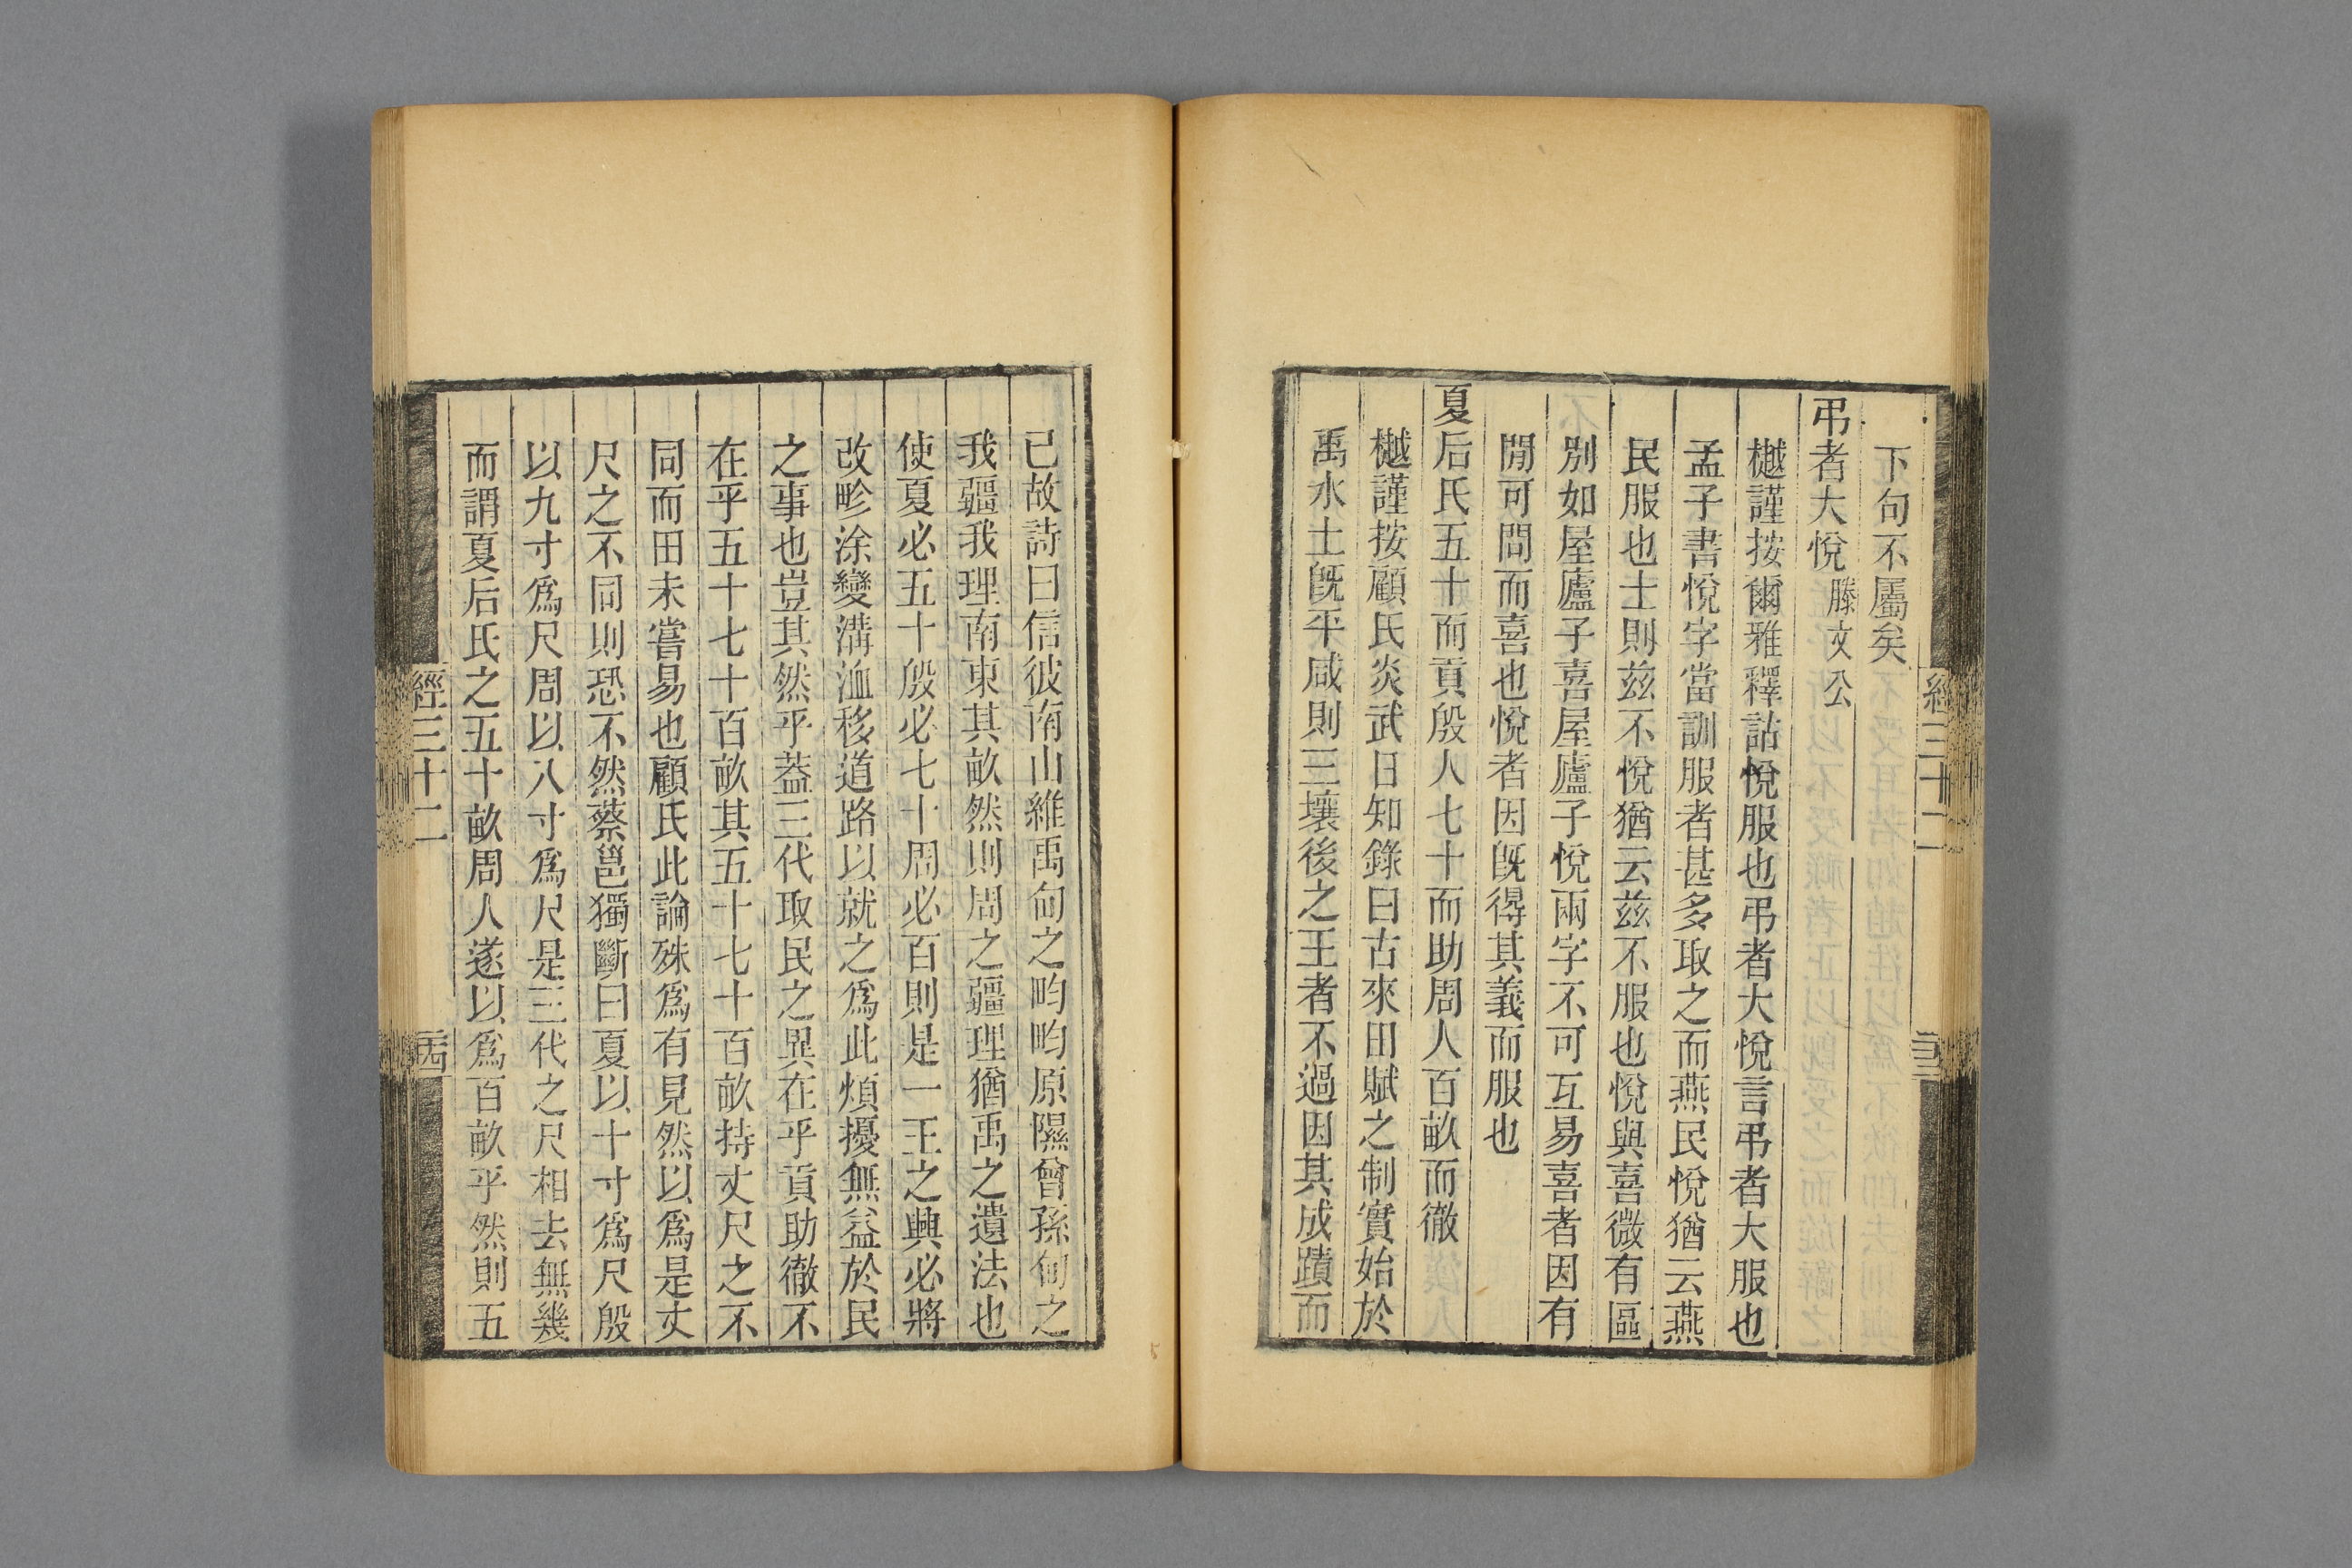 下句不屬矣
弔者大悅滕文公
樾謹按爾雅釋詁悅服也弔者大悅言弔者大服也
孟子書悅字當訓服者甚多取之而燕民悅猶云燕
民服也士則玆不悅猶云玆不服也悅與喜微有區
別如屋廬子喜屋廬子悅兩字不可互易喜者因有
閒可問而喜也悅者因旣得其義而服也
夏后氏五十而貢殷人七十而助周人百畝而徹
樾謹按顧氏炎武日知錄曰古來田賦之制實始於
禹水土旣平咸則三壤後之王者不過因其成蹟而
已故詩曰信彼南山維禹甸之畇畇原隰曾孫甸之
我疆我理南東其畝然則周之疆理猶禹之遺法也
使夏必五十殷必七十周必百則是一王之興必將
改畛涂變溝洫移道路以就之爲此煩擾無益於民
之事也豈其然乎葢三代取民之異在乎貢助徹不
在乎五十七十百畝其五十七十百畝持丈尺之不
同而田未嘗易也顧氏此論殊爲有見然以爲是丈
尺之不同則恐不然蔡邕獨斷曰夏以十寸爲尺殷
以九寸爲尺周以八寸爲尺是三代之尺相去無幾
而謂夏后氏之五十畝周人遂以爲百畝乎然則五
經三十二